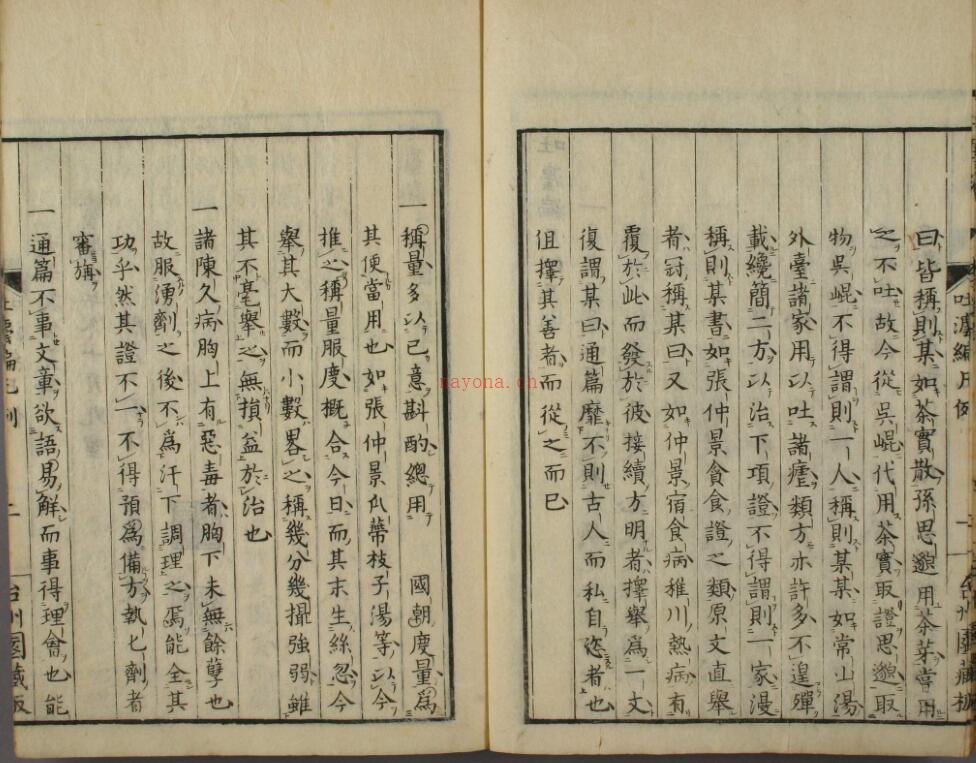 曰皆稱則某如茶實散孫思邈用茶芽嘗用
之不吐故今從吳崐代用茶實取證思邈取
物吳崐不得謂則一人稱則某某如常山湯
外臺諸家用以吐諸瘧類方亦許多不遑殫
載纔簡二方以治下項證不得謂則一家漫
稱則某書如張仲景貪食證之類原文直舉
者冠稱某曰又如仲景宿食病稚川熱病有
覆於此而發於彼接續方明者擇舉爲一文
復謂某曰通篇靡不則古人而私自恣者也
但擇其善者而從之而已
一稱量多以己意斟酌總用 國朝度量爲
其便當用也如張仲景瓜蒂枝子湯等以今
推之稱量服度概合今日而其末生絲忽今
舉其大數而小數畧之稱幾分幾撮強弱雖
其不毫舉之無損益於治也
一諸陳久病胸上有惡毒者胸下未無餘孽也
故服湧劑之後不爲汗下調理之焉能全其
功乎然其證不一不得預爲備方執匕劑者
審旃
一通篇不事文章欲語易解而事得理會也能
nayona.cn